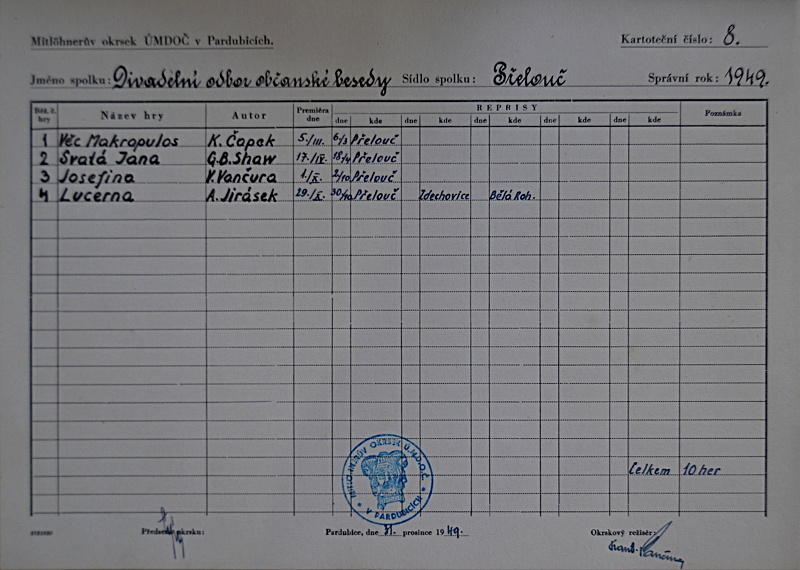 Mitlöhnerův okrsek ÚMDOČ v Pardubicích. Kartoteční číslo: 8.
Jméno spolku: Divadelní odbor občanské besedy Sídlo spolku: Přelouč Správní rok: 1949.
Řad. č. hry Název hry Autor Premiéra dne REPRISY Poznámka
dne kde dne kde dne kde dne kde dne kde
1 Věc Makropulos K. Čapek 5./III. 6/3 Přelouč
2 Svatá Jana G.B. Shaw 17./IV. 18/4 Přelouč
3 Josefina V. Vančura 1./X. 2/10 Přelouč
4 Lucerna A. Jirásek 29./X. 30/10 Přelouč Zdechovice Bělá Roh.
Celkem 10 her
MITLÖHNERŮV OKRSEK Ú.M.D.O.Č. V PARDUBICÍCH
Předseda okrsku: Pardubice, dne 31. prosince 1949. Okrskový režisér: